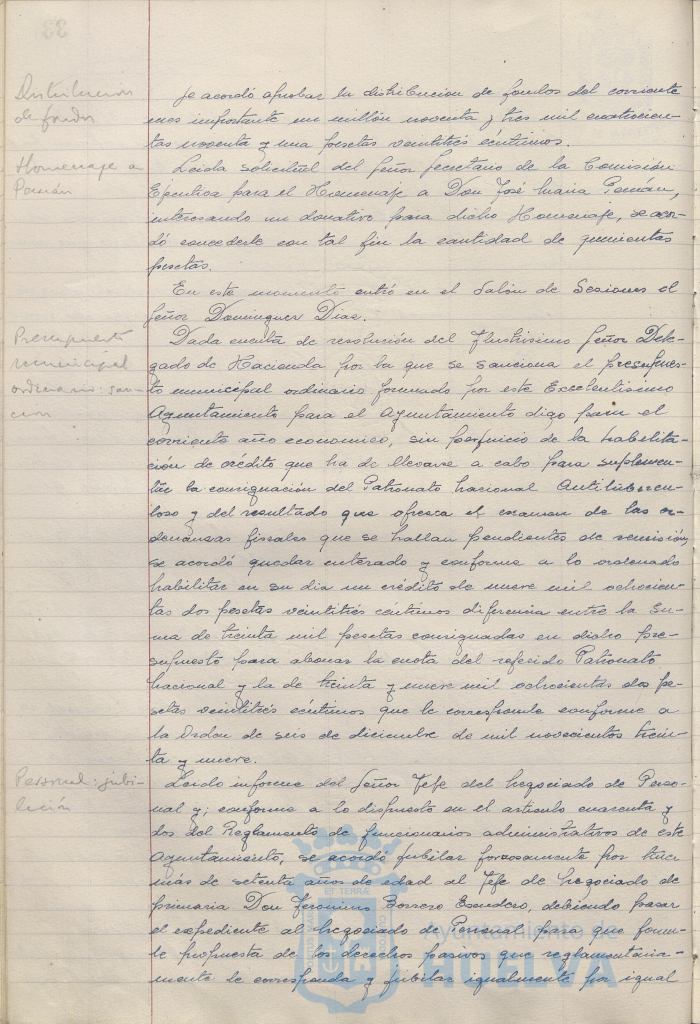 Distribución
de fondos
Se acordó aprobar la distribucion de fondos del corriente
mes importante un millón noventa y tres mil cuatrocien-
tas noventa y una pesetas veintitrés céntimos.
Homenaje a
Pemán
Leida solicitud del Señor Secretario de la Comisión
Ejecutiva para el Homenaje a Don José María Peman,
interesando un donativo para dicho Homenaje, se acor-
dó concederle con tal fin la cantidad de quinientas
pesetas.
En este momento entró en el Salón de Sesiones el
Señor Dominguez Diaz.
Presupuesto
municipal
ordinario: san-
cion
Dada cuenta de resolución del Ilustrisimo Señor Dele-
gado de Hacienda por la que se sanciona el presupues-
to municipal ordinario formado por este Excelentisimo
Ayuntamiento para el Ayuntamiento digo para el
corriente año economico, sin perjuicio de la habilita-
ción de crédito que ha de llevarse a cabo para suplemen-
tar la consignación del Patronato Nacional Antitubercu-
loso y del resultado que ofrezca el examen de las or-
denanzas fiscales que se hallan pendientes de remisión,
se acordó quedar enterado y conforme a lo ordenado
habilitar en su dia un crédito de nueve mil ochocien-
tas dos pesetas veintitrés céntimos diferencia entre la su-
ma de treinta mil pesetas consignadas en dicho pre-
supuesto para abonar la cuota del referido Patronato
Nacional y la de treinta y nueve mil ochocientas dos pe-
setas veintitrés céntimos que le corresponde conforme a
la Orden de seis de diciembre de mil novecientos trein-
ta y nueve.
Personal: jubi-
lación
Leido informe del Señor Jefe del Negociado de Perso-
nal y, conforme a lo dispuesto en el articulo cuarenta y
dos del Reglamento de funcionarios administrativos de este
Ayuntamiento, se acordó jubilar forzosamente por tener
más de setenta años de edad al Jefe de Negociado de
primaria Don Jeronimo Borrero Escudero, debiendo pasar
el expediente al Negociado de Personal para que formu-
le propuesta de los derechos pasivos que reglamentaria-
mente le corresponda y jubilar igualmente por igual
ET TERRÆ
Ayuntamiento de
HUELVA